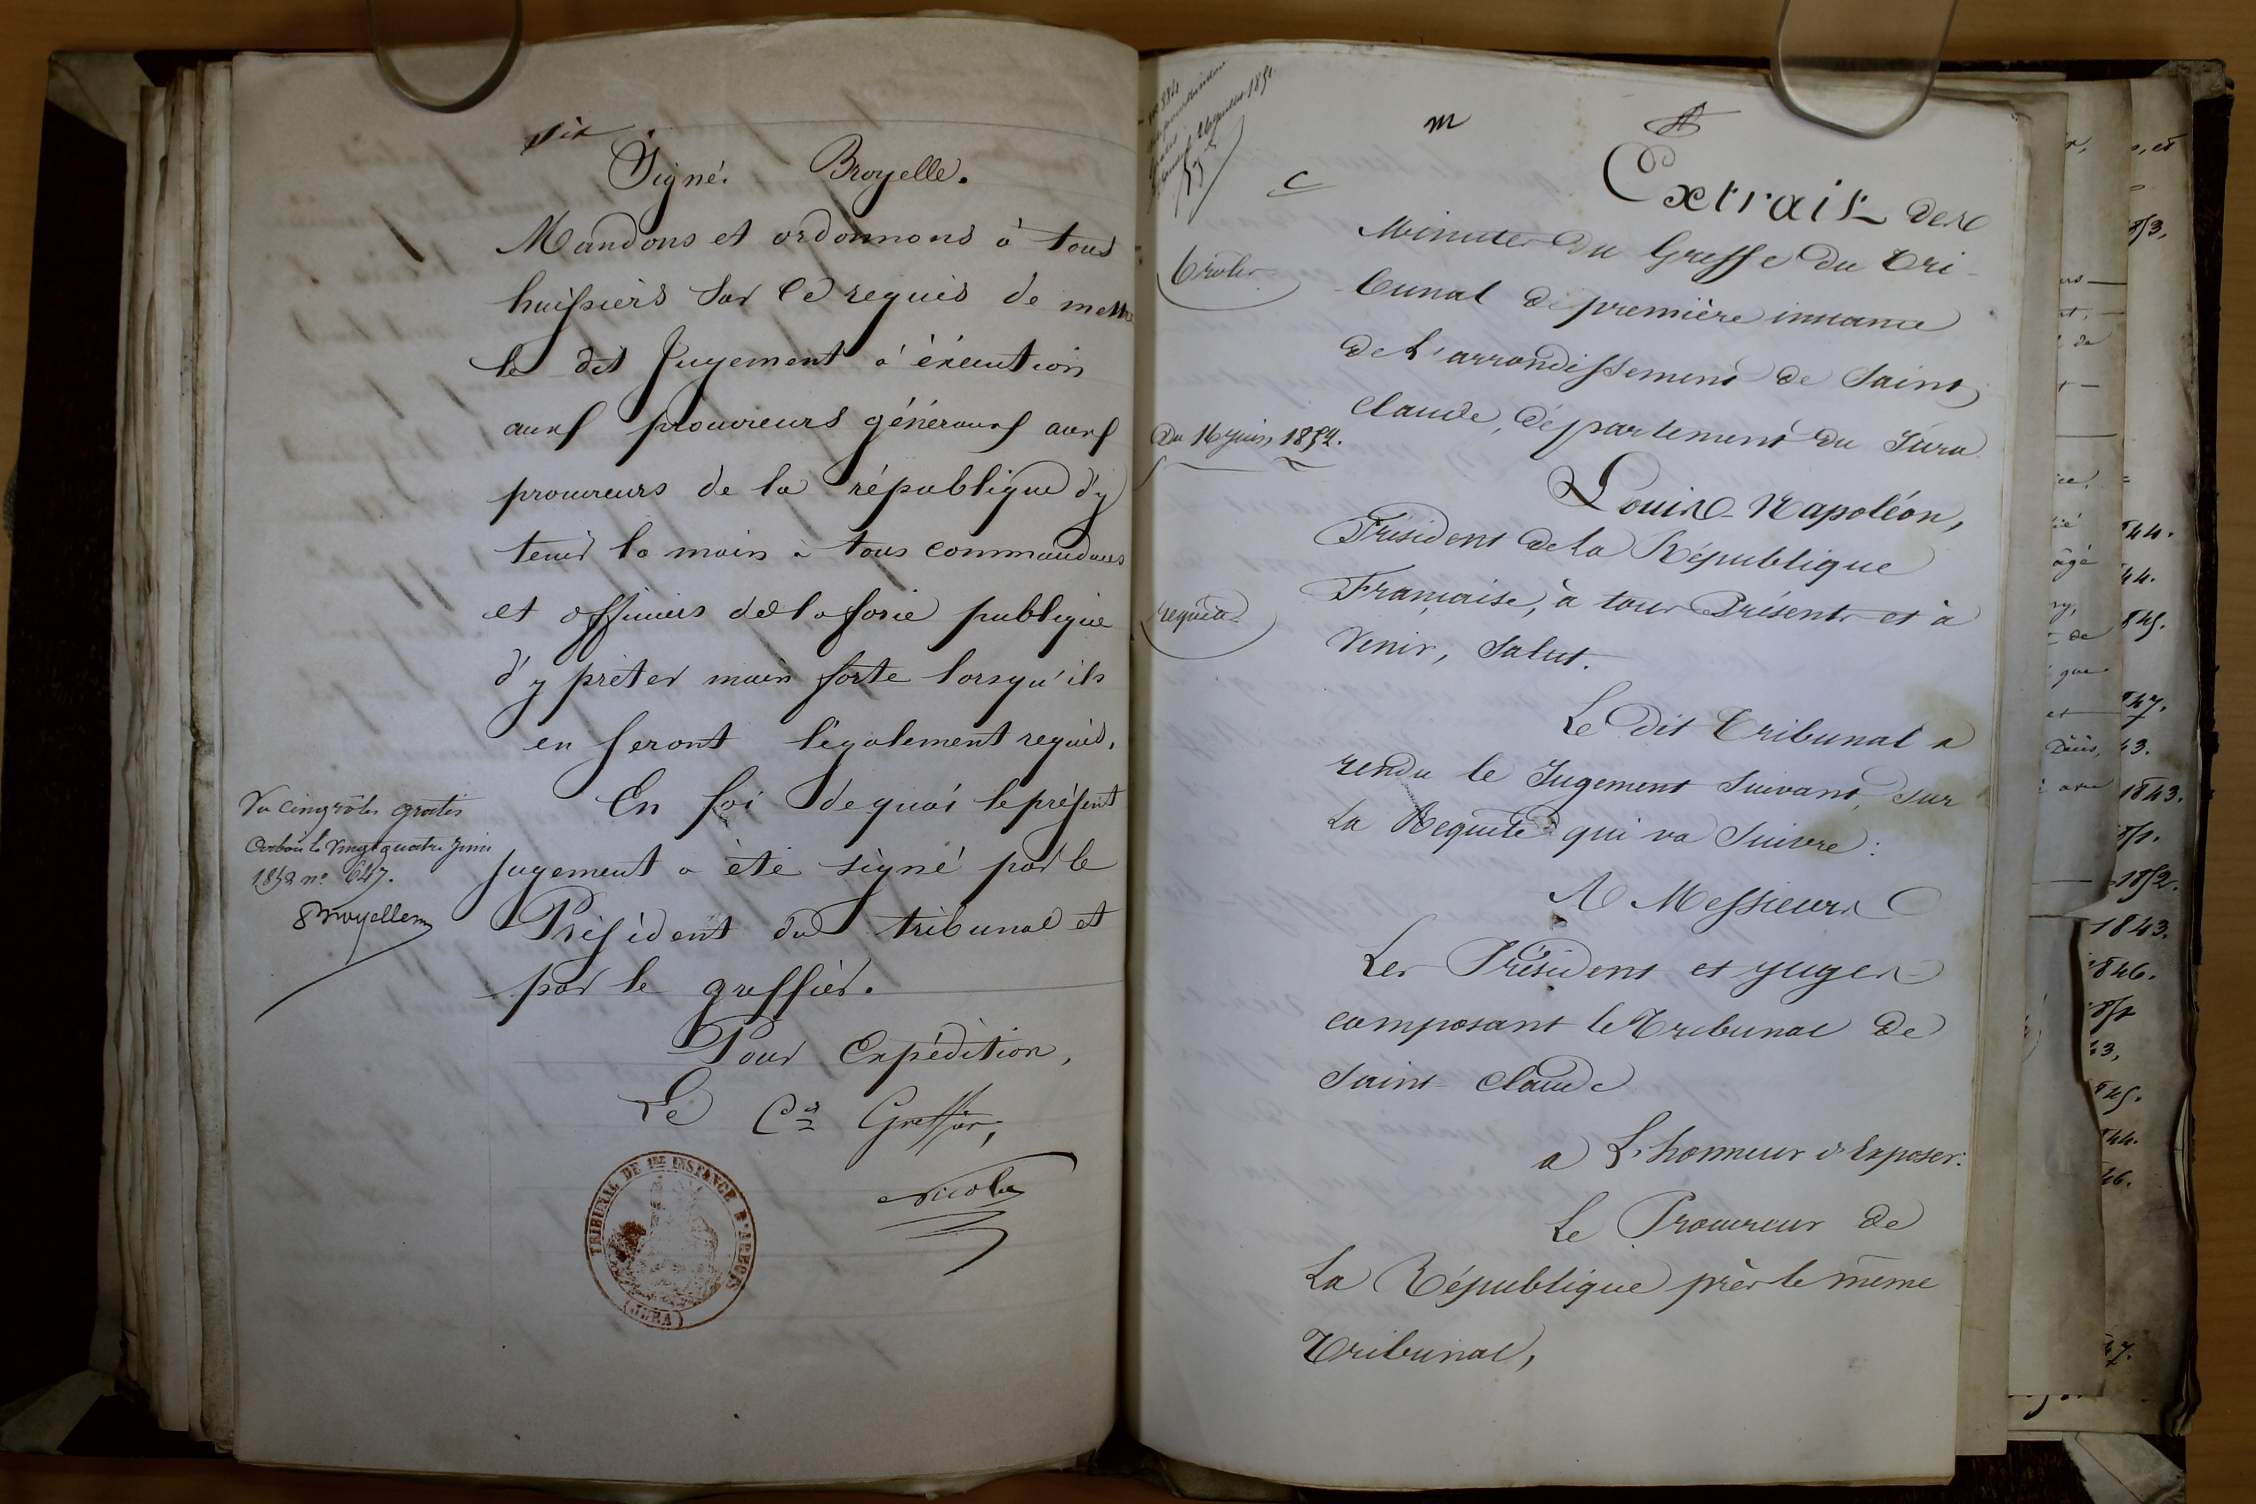 Signé. Broyelle.
Mandons et ordonnons à tous
huissiers sur ce requis de mettre
le dit Jugement à éxécution
aux procureurs généraux aux
procureurs de la république d'y
tenir la main à tous commandants
et officiers de la force publique
d'y prêter main forte lorsqu'ils
en seront légalement requis.
En foi de quoi le présent
Jugement a été signé par le
Président du tribunal et
par le greffier.
Pour Expédition,
Le Cis Greffier,
Nicolas
Vu cinq rôles gratis
Arbois le Vingt quatre Juin
1852 n° 647.
Broyelle
TRIBUNAL DE 1RE INSTANCE D'ARBOIS
(JURA)
m
C
Extrait des
Minutes du Greffe du Tri-
bunal de première instance
de L'arrondissement de Saint
Claude, département du Jura
Louis-Napoléon,
Président de la République
Française, à tous Présents et à
Venir, Salut.
Le dit Tribunal a
rendu le Jugement Suivant, sur
La Requête qui va Suivre :
A Messieurs
Les Président et juges
composant le Tribunal de
Saint-Claude
a L'honneur d'Exposer.
Le Procureur de
La République près le même
Tribunal,
6 roles
Du 16 juin 1852.
requête